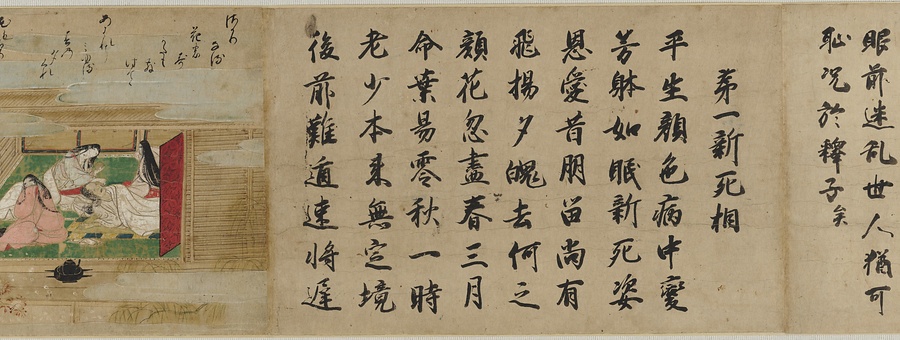 眼前迷乱世人猶可
耻况於釋子矣
苐一新死相
平生顔色病中變
芳躰如眠新死姿
恩愛昔朋留尚有
飛揚夕魄去何之
顔花忽盡春三月
命葉易零秋一時
老少本来無定境
後前難遁速将遅